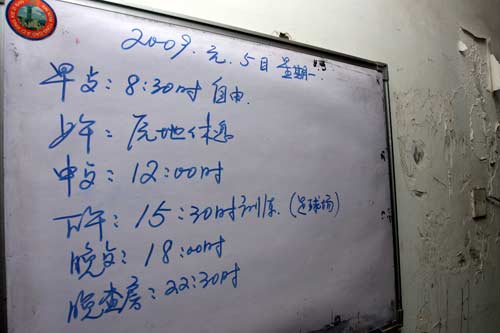 2009.元.5日星期一.
早歺：8:30时 自由.
上午：原地休息
中歺：12:00时
下午：15:30时训练.(足球场)
晚歺：18:00时
晚查房：22:30时